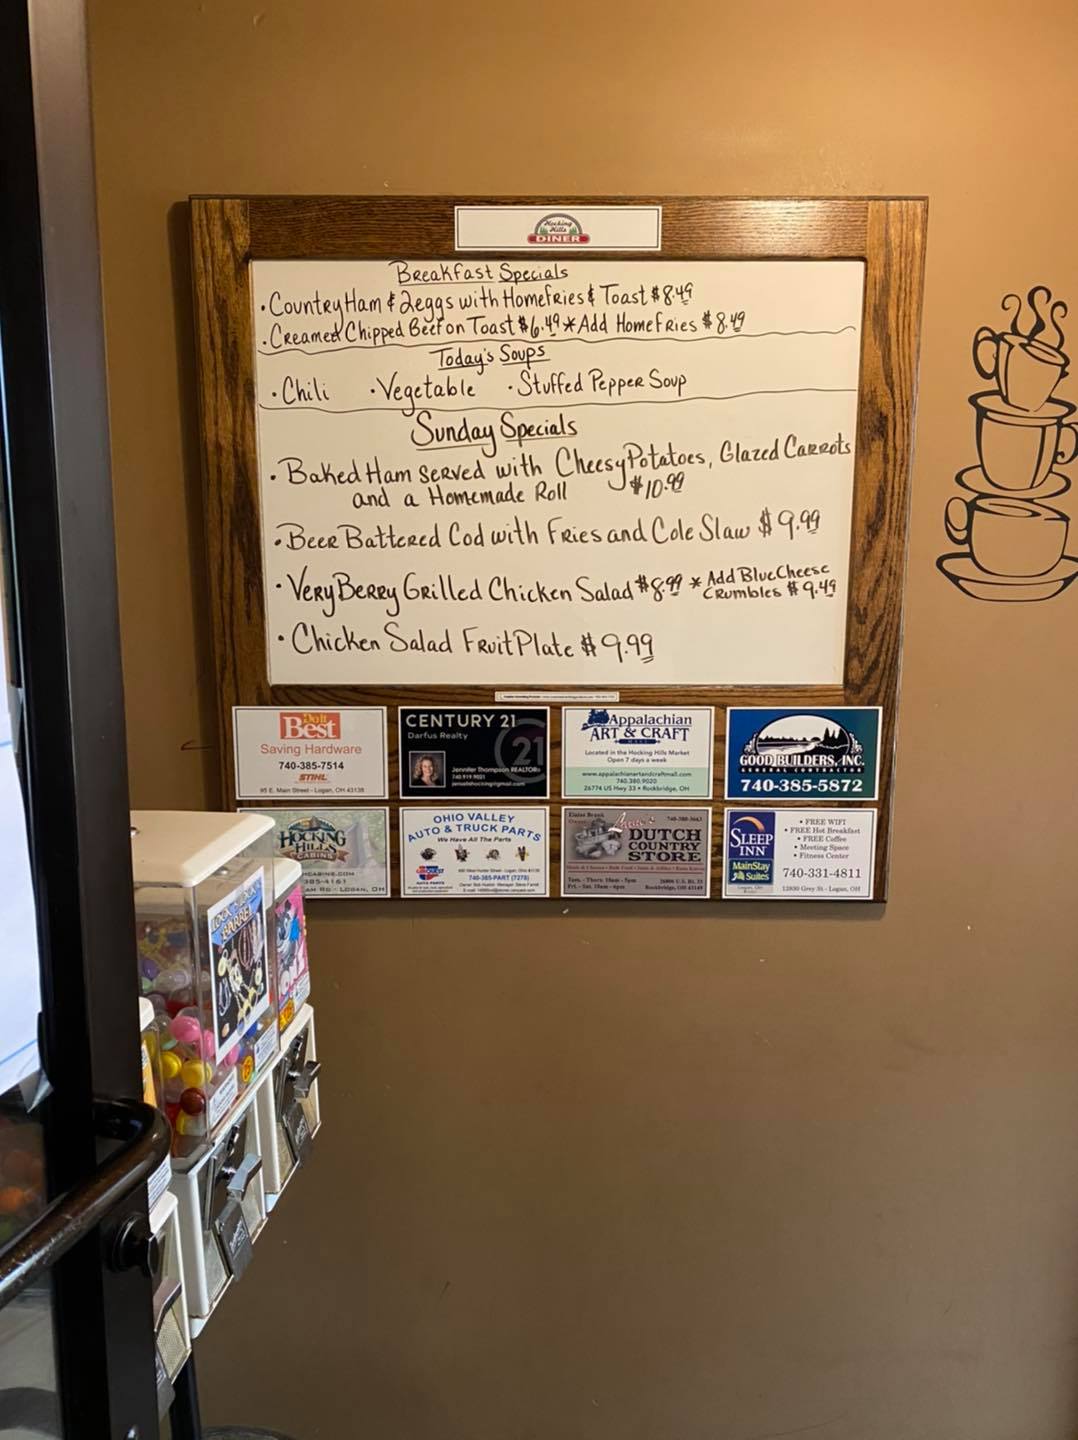 Hocking
Hills
DINER
Breakfast Specials
• Country Ham & 2eggs with Homefries & Toast $8.49
• Creamed Chipped Beef on Toast $6.49 * Add Homefries $8.49
Today's Soups
• Chili • Vegetable • Stuffed Pepper Soup
Sunday Specials
• Baked Ham served with Cheesy Potatoes, Glazed Carrots
and a Homemade Roll $10.99
• Beer Battered Cod with Fries and Cole Slaw $9.99
• Very Berry Grilled Chicken Salad $8.99 * Add Blue Cheese
Crumbles $9.49
• Chicken Salad Fruit Plate $9.99
Do it
Best
Saving Hardware
740-385-7514
STIHL
95 E. Main Street - Logan, OH 43138
CENTURY 21
Darfus Realty
21
Jennifer Thompson REALTOR®
740.919.9021
Appalachian
ART & CRAFT
MALL
Located in the Hocking Hills Market
Open 7 days a week
www.appalachianartandcraftmall.com
740.380.9020
26774 US Hwy 33 • Rockbridge, OH
GOOD BUILDERS, INC.
GENERAL CONTRACTOR
740-385-5872
HOCKING
HILLS
CABINS
HCABINE.COM
385-4161
LOGAN, OH
OHIO VALLEY
AUTO & TRUCK PARTS
We Have All The Parts
CARQUEST
AUTO PARTS
740-385-PART (7278)
740-380-3663
DUTCH
COUNTRY
STORE
Tues. - Thurs. 10am - 5pm
Fri. - Sat. 10am - 6pm
Rockbridge, OH 43149
SLEEP
INN
MainStay
Suites
Logan, OH
• FREE WIFI
• FREE Hot Breakfast
• FREE Coffee
• Meeting Space
• Fitness Center
740-331-4811
12930 Grey St - Logan, OH
BARREL